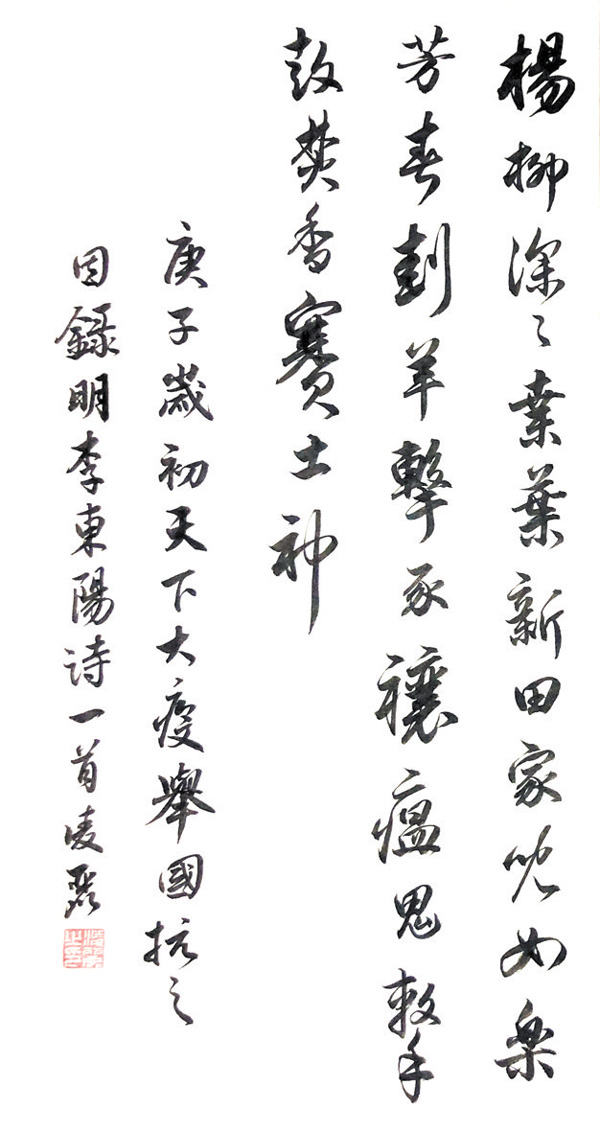 楊柳深〻桒葉新田家兒女樂
芳春刲羊擊豕禳瘟鬼擊手
鼓焚香賽土神
庚子歲初天下大疫舉國抗之
因錄明李東陽詩一首凌磊